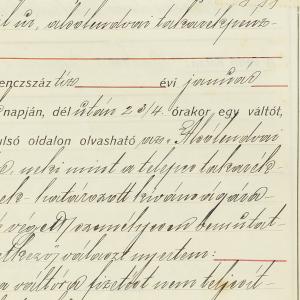 úr, alsólendvai takarékpénz-
enczszáz tíz évi január
napján, dél után 2 3/4 órakor egy váltót,
ulsó oldalon olvasható az Alsólendvai
neki mint a telepes takarék-
nek határozott kivánságára
végett személyesen bemutat-
következő választ nyertem:
a váltóra fizetést nem teljesít-